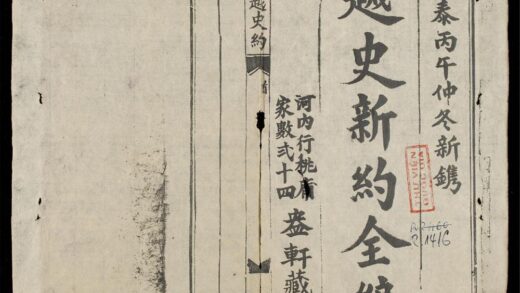 泰丙午仲冬新鐫
越史新約全編
河內行桃
家數弍十四
盎軒藏
越史約
R.1416